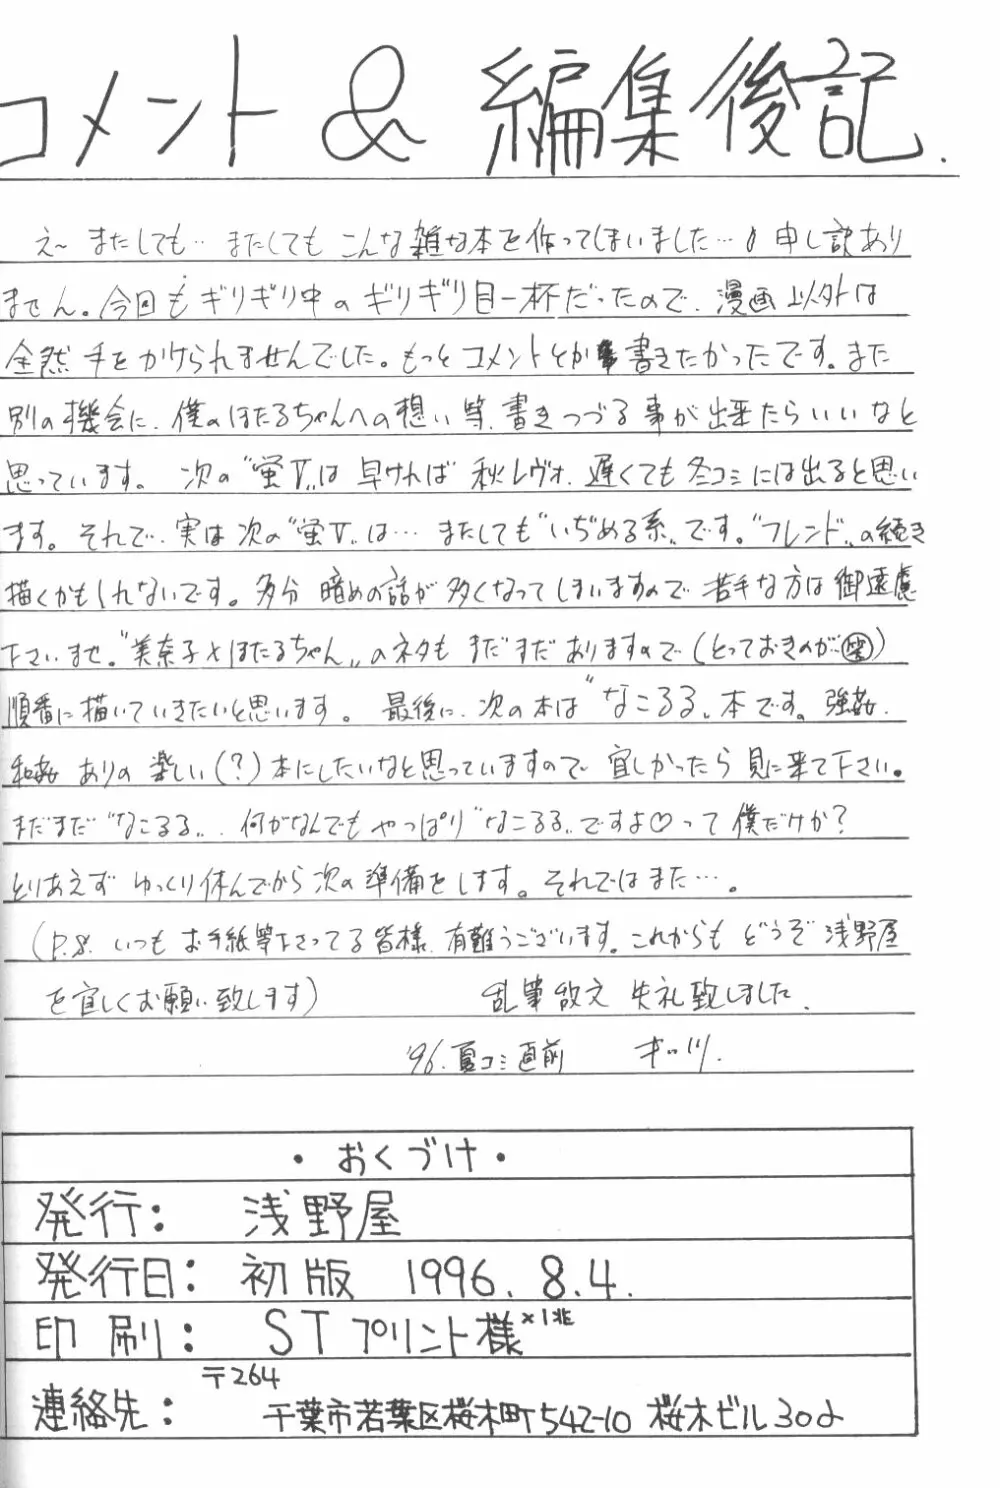 コメント & 編集後記.
え〜 またしても‥ またしても こんな雑な本を作ってしまいました…♪ 申し訳あり
ません。今回も ギリギリ中の ギリギリ目一杯だったので、漫画以外は
全然 手を かけられませんでした。もっと コメントとか 書きたかったです。また
別の機会に、僕のほたるちゃんへの想い 等、書きつづる 事が 出来たらいいなと
思っています。 次の“蛍Ⅴ„は 早ければ 秋レヴォ、遅くても 冬コミには出ると思い
ます。それで、実は 次の“蛍Ⅴ„は… またしても“いぢめる系„です。“フレンド„の続き
描くかもしれないです。多分 暗めの話が 多くなってしまいますので 苦手な方は 御遠慮
下さいませ。“美奈子×ほたるちゃん„のネタも まだまだ ありますので (とっておきのが‥㊤)
順番に 描いていきたいと思います。 最後に、次の本は“なこるる„本です。強姦、
和姦 ありの 楽しい(?)本にしたいなと思っていますので 宜しかったら 見に来て下さい。
まだまだ“なこるる„、何がなんでも やっぱり“なこるる„ですよ♡って 僕だけか?
とりあえず ゆっくり休んでから次の準備をします。それではまた…。
(P.S. いつも お手紙等下さってる皆様、有難うございます。これからも どうぞ 浅野屋
を宜しくお願い致します) 乱筆散文 失礼致しました。
'96.夏コミ直前
・おくづけ・
発行: 浅野屋
発行日: 初版 1996. 8.4.
印刷: STプリント様×1兆
〒264
連絡先: 千葉市若葉区桜木町542-10 桜木ビル